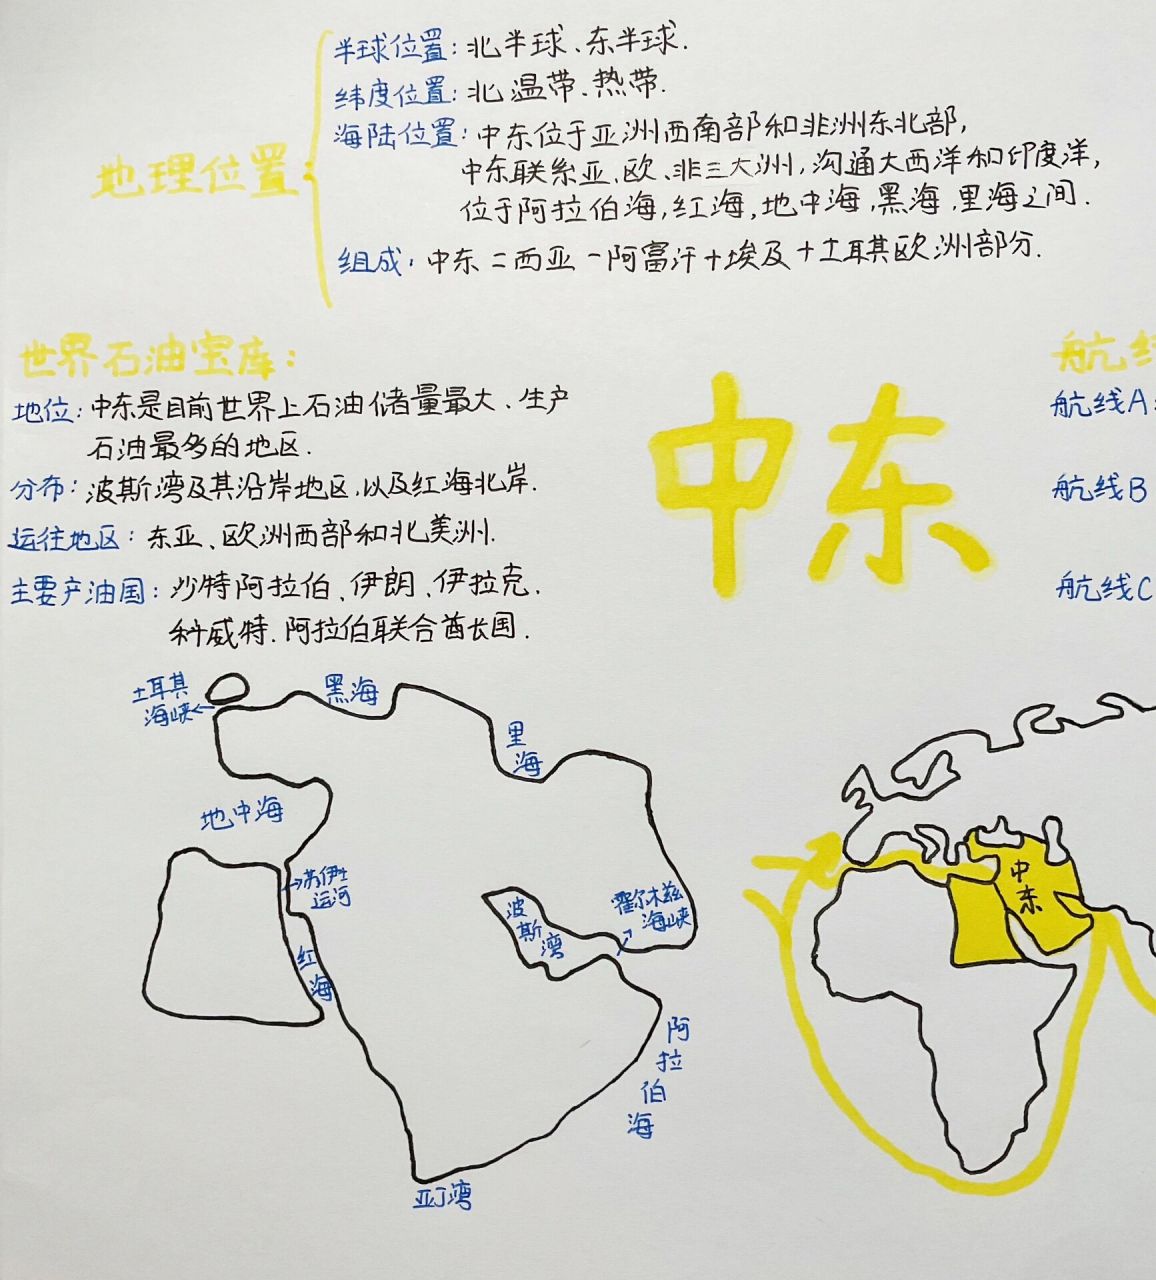 半球位置：北半球、东半球.
纬度位置：北温带、热带.
海陆位置：中东位于亚洲西南部和非洲东北部，
地理位置：
中东联系亚、欧、非三大洲，沟通大西洋和印度洋，
位于阿拉伯海，红海，地中海，黑海，里海之间.
组成：中东=西亚-阿富汗+埃及+土耳其欧洲部分.
世界石油宝库：
地位：中东是目前世界上石油储量最大、生产
石油最多的地区.
分布：波斯湾及其沿岸地区，以及红海北岸.
运往地区：东亚、欧洲西部和北美洲.
主要产油国：沙特阿拉伯、伊朗、伊拉克.
科威特.阿拉伯联合酋长国.
中东
航线
航线A：
航线B
航线C
土耳其
海峡
黑海
里海
地中海
苏伊士
运河
红海
波斯湾
霍尔木兹
海峡
阿拉伯海
亚丁湾
中东